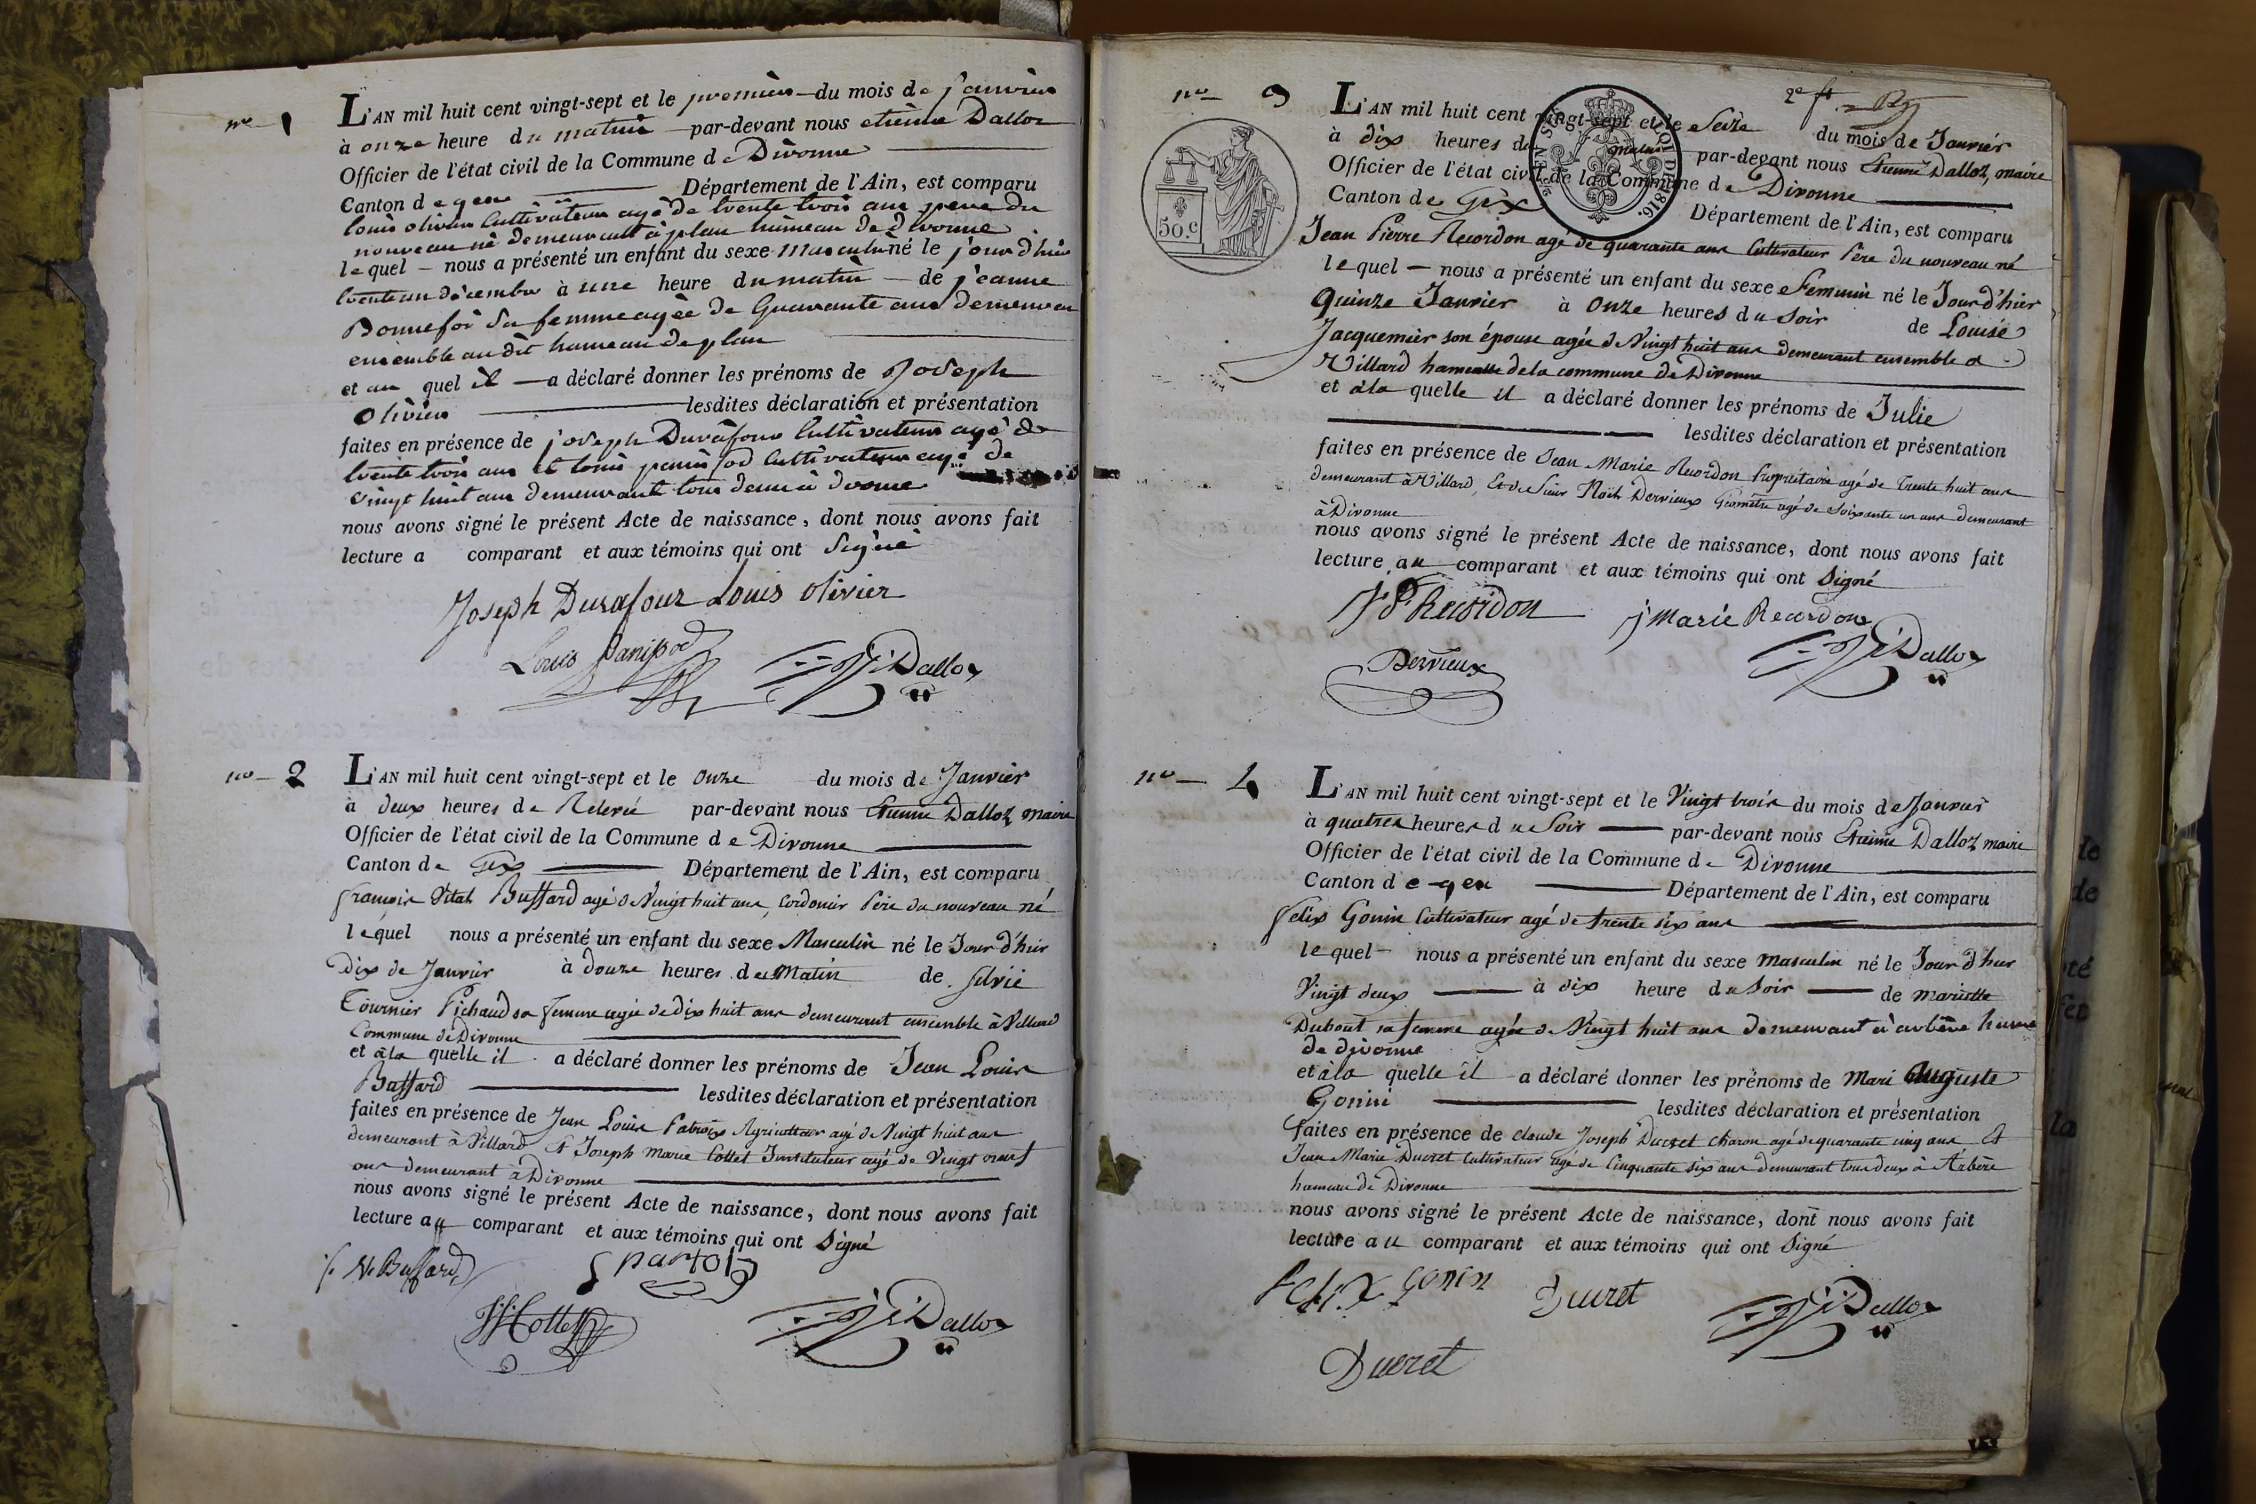 nº 1
L'AN mil huit cent vingt-sept et le premier du mois de janvier
à onze heure du matin par-devant nous etiènne Dalloz
Officier de l'état civil de la Commune de Divonne
Canton de gex Département de l'Ain, est comparu
louis olivier Cultivateur agé de trente trois ans pere du
nouveau né demeurant à plan hameau de divonne
lequel nous a présenté un enfant du sexe masculin né le jour d'hier
trente un décembre à une heure du matin de jeanne
Bonnefoi sa femme agée de Quarante ans demeurant
ensemble au dit hameau de plan
et au quel il a déclaré donner les prénoms de Joseph
Olivier lesdites déclaration et présentation
faites en présence de joseph Durafour Cultivateur agé de
trente trois ans et louis panissod Cultivateur agé de
vingt huit ans demeurants tous deux à divonne
nous avons signé le présent Acte de naissance, dont nous avons fait
lecture a comparant et aux témoins qui ont Signé
Joseph Durafour Louis olivier
Louis Panissod Dalloz
nº 2
L'AN mil huit cent vingt-sept et le onze du mois de Janvier
à deux heures de Relevée par-devant nous Etienne Dalloz, maire
Officier de l'état civil de la Commune de Divonne
Canton de Gex Département de l'Ain, est comparu
françois Vital Buffard agé de Vingt huit ans, Cordonier Père du nouveau né
lequel nous a présenté un enfant du sexe Masculin né le Jour d'hier
dix de Janvier à douze heures du Matin de Silvie
Tournier Pichaud sa femme agée de dix huit ans demeurant ensemble à Villard
Commune de Divonne
et à la quelle il a déclaré donner les prénoms de Jean Louis
Buffard lesdites déclaration et présentation
faites en présence de Jean Louis Patroix Agriculteur agé de Vingt huit ans
demeurant à Villard et Joseph Marie Collet Instituteur agé de Vingt neuf
ans demeurant à Divonne
nous avons signé le présent Acte de naissance, dont nous avons fait
lecture au comparant et aux témoins qui ont Signé
f. V. Buffard
Collet Dalloz
2e ft.
nº 3
L'AN mil huit cent vingt-sept et le Seize du mois de Janvier
à dix heures du matin par-devant nous Etienne Dalloz, maire
Officier de l'état civil de la Commune de Divonne
Canton de Gex Département de l'Ain, est comparu
50.c
LOI DE 1816.
Jean Pierre Recordon agé de quarante ans Cultivateur Père du nouveau né
lequel nous a présenté un enfant du sexe Feminin né le Jour d'hier
Quinze Janvier à onze heures du Soir de Louise
Jacquemier son épouse agée de Vingt huit ans demeurant ensemble à
Villard hameau de la commune de Divonne
et à la quelle il a déclaré donner les prénoms de Julie
lesdites déclaration et présentation
faites en présence de Jean Marie Recordon Propriétaire agé de Trente huit ans
demeurant à Villard, Et de Sieur Noël Dervieux Géomètre agé de Soixante un ans demeurant
à Divonne
nous avons signé le présent Acte de naissance, dont nous avons fait
lecture au comparant et aux témoins qui ont Signé
J P Recordon j Marie Recordon
Dervieux Dalloz
nº 4
L'AN mil huit cent vingt-sept et le Vingt trois du mois de Janvier
à quatre heures du Soir par-devant nous Etienne Dalloz maire
Officier de l'état civil de la Commune de Divonne
Canton de gex Département de l'Ain, est comparu
felix Gonin Cultivateur agé de trente six ans
lequel nous a présenté un enfant du sexe masculin né le Jour d'hier
Vingt deux à dix heure du Soir de mariette
Dubout sa femme agée de Vingt huit ans demeurant à arbère hameau
de divonne
et à la quelle il a déclaré donner les prénoms de Mari Auguste
Gonin lesdites déclaration et présentation
faites en présence de Claude Joseph Ducret charon agé de quarante cinq ans et
Jean Marie Ducret Cultivateur agé de Cinquante six ans demeurant tous deux à Arbère
hameau de Divonne
nous avons signé le présent Acte de naissance, dont nous avons fait
lecture au comparant et aux témoins qui ont Signé
felix gonin Ducret Dalloz
Ducret